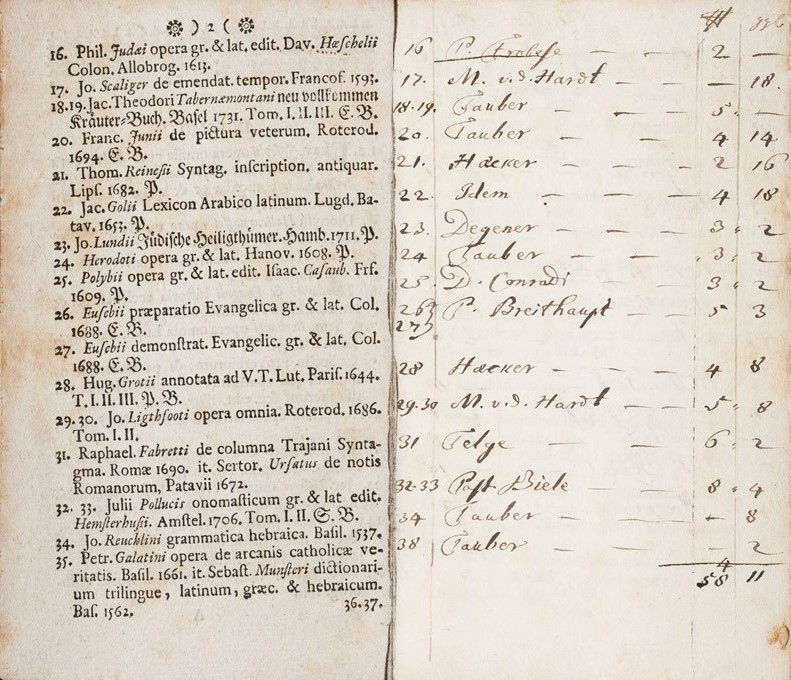 ) 2 (
16. Phil. Judæi opera gr. & lat. edit. Dav. Hœſchelii
Colon. Allobrog. 1613.
17. Jo. Scaliger de emendat. tempor. Francof. 1593.
18.19. Jac. Theodori Tabernæmontani neu vollkommen
Kräuter-Buch. Baſel 1731. Tom. I. II. III. E. B.
20. Franc. Junii de pictura veterum. Roterod.
1694. E. B.
21. Thom. Reineſii Syntag. inſcription. antiquar.
Lipſ. 1682. P.
22. Jac. Golii Lexicon Arabico latinum. Lugd. Ba-
tav. 1653. P.
23. Jo. Lundii Jüdiſche Heiligthümer. Hamb. 1711. P.
24. Herodoti opera gr. & lat. Hanov. 1608. P.
25. Polybii opera gr. & lat. edit. Iſaac. Caſaub. Frf.
1609. P.
26. Euſebii præparatio Evangelica gr. & lat. Col.
1688. E. B.
27. Euſebii demonſtrat. Evangelic. gr. & lat. Col.
1688. E. B.
28. Hug. Grotii annotata ad V. T. Lut. Pariſ. 1644.
T. I. II. III. P. B.
29. 30. Jo. Ligthfooti opera omnia. Roterod. 1686.
Tom. I. II.
31. Raphael. Fabretti de columna Trajani Synta-
gma. Romæ 1690. it. Sertor. Urſatus de notis
Romanorum, Patavii 1672.
32. 33. Julii Pollucis onomaſticum gr. & lat edit.
Hemſterhuſii. Amſtel. 1706. Tom. I. II. S. B.
34. Jo. Reuchlini grammatica hebraica. Baſil. 1537.
35. Petr. Galatini opera de arcanis catholicæ ve-
ritatis. Baſil. 1661. it. Sebaſt. Munſteri dictionari-
um trilingue, latinum, græc. & hebraicum.
Baſ. 1562.
36.37.
16 P. Frobeſe — — 2 —
17. M. v. d. Hardt — — — 18.
18.19. Tauber — — — 5 —
20. Tauber — — — 4 14
21. Hæcker — — — 2 16
22. Idem — — — 4 18
23. Degener — — 3 2
24 Tauber — — 3 2
25 D. Conradi — — 3 2
26 P. Breithaupt — — 5 3
27
28 Hæcker — — 4 8
29.30 M. v. d. Hardt — — 5 8
31 Telge — — — 6 2
32.33 Paſt Biele — — — 8 4
34 Tauber — — — — 8
38 Tauber — — — — 2
4
58 11